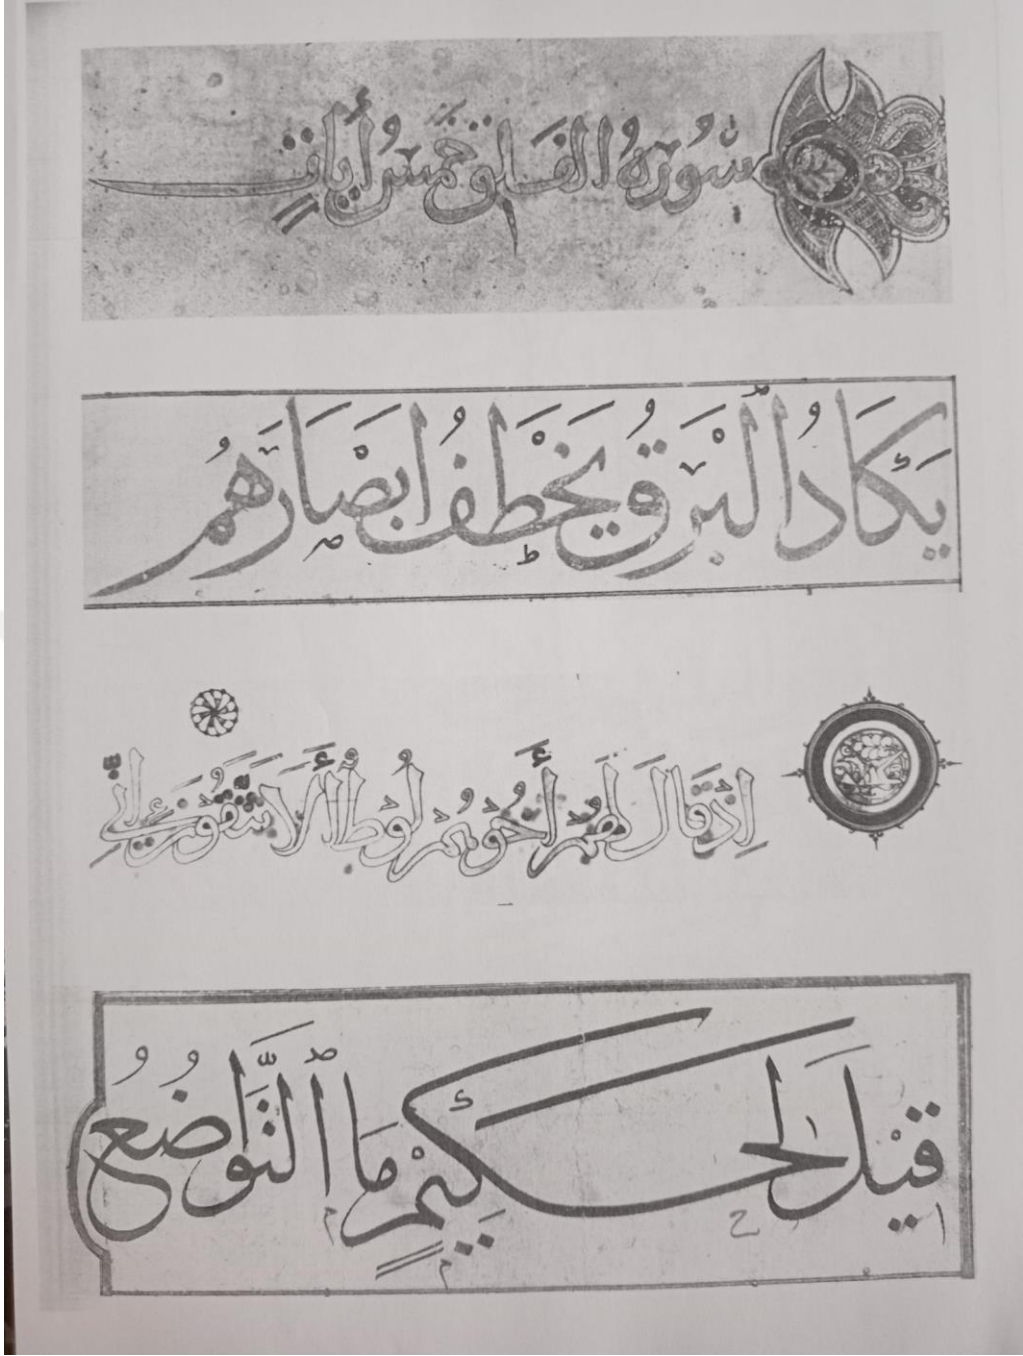 سُورَةُ الفَلَقِ خَمْسُ أَيَاتٍ
يَكَادُ الْبَرْقُ يَخْطَفُ ابْصَارَهُمْ
اِذْ قَالَ لَهُمْ أَخُوهُمْ لُوطٌ أَلَا تَتَّقُونَ اِنِّي
قِيْلَ لِحَكِيْمٍ مَا ٱلتَّوَاضُعُ